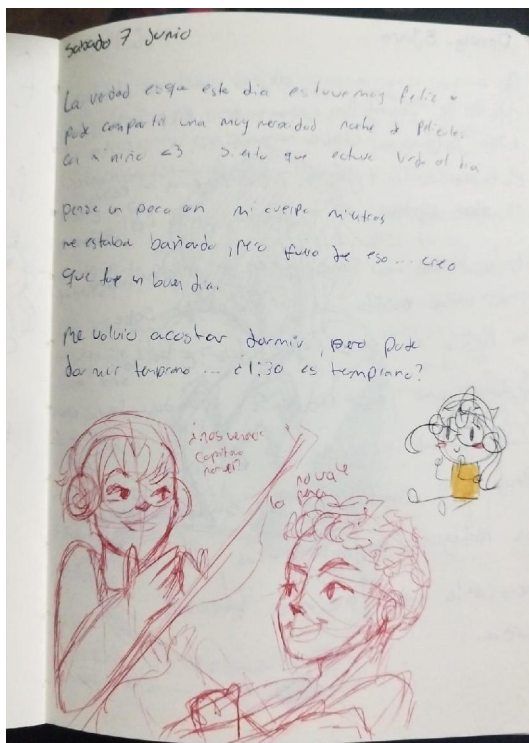 sabado 7 Junio
La verdad esque este dia estuve muy feliz
pude compartir una muy merecidad noche de Peliculas
con mi niño <3 Siento que estuve todo el dia
pense un poco en mi cuerpo mientras
me estaba bañando, pero fuera de eso... creo
que fue un buen dia.
me volvio acostar dormir, pero pude
dormir temprano... ¿1:30 es temprano?
¿nos vemos
no vale
la pena